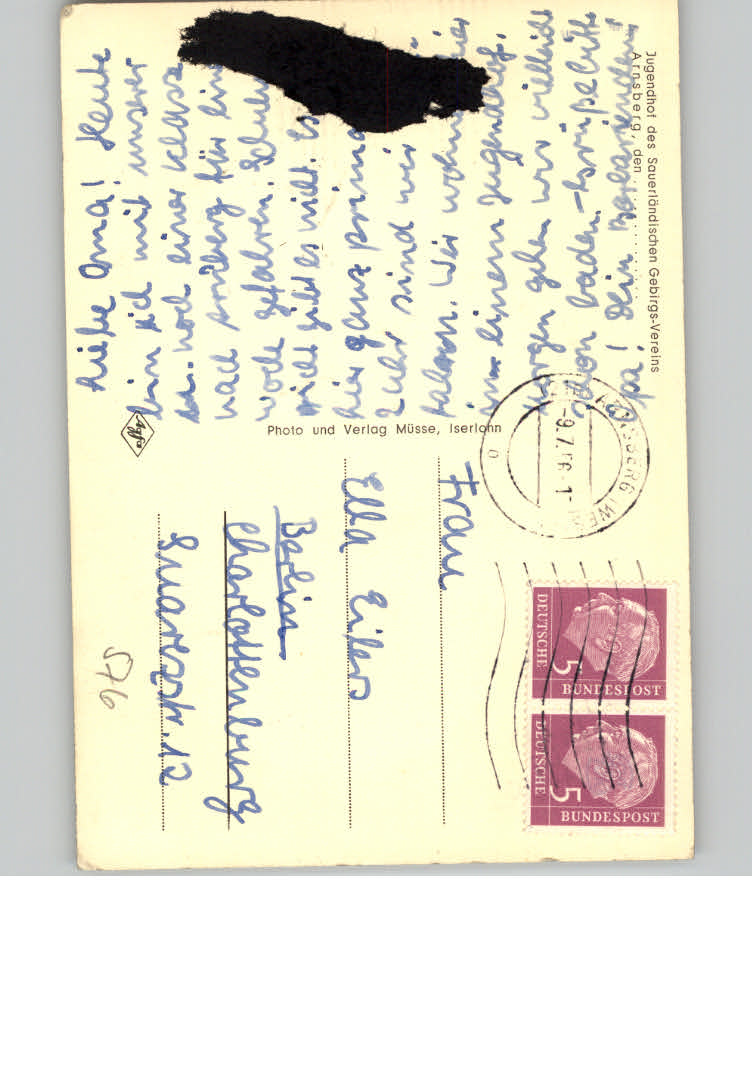 Jugendhof des Sauerländischen Gebirgs-Vereins
Arnsberg, den
Liebe Oma! Heute
bin ich mit unserer
u. noch einer Klasse
nach Arnsberg für ein
Woche gefahren. Schul
nicht gibt es nicht. Es
hier ganz prima
2 Uhr sind wir
Wir wohnen hier
in einem Jugendhof.
Morgen gehen wir vielleicht
schon baden. Grüße bitte
Opa! Dein
Agfa
Photo und Verlag Müsse, Iserlohn
ARNSBERG (WESTF
-9.7.56-1
DEUTSCHE
BUNDESPOST
5
DEUTSCHE
BUNDESPOST
5
Frau
Ella Eilers
Berlin
Charlottenburg
Suarezstr. 12
576